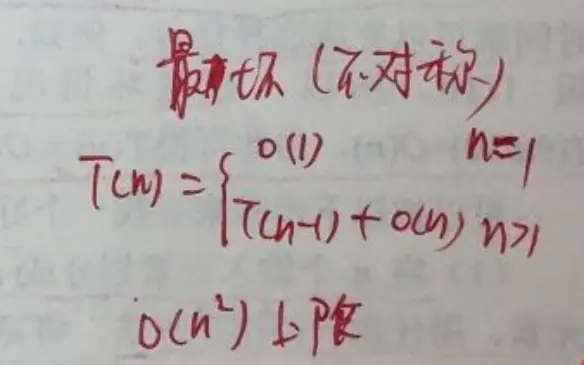 最坏(不对称)
T(n) = { O(1) n=1
T(n-1) + O(n) n>1
O(n²) 上限